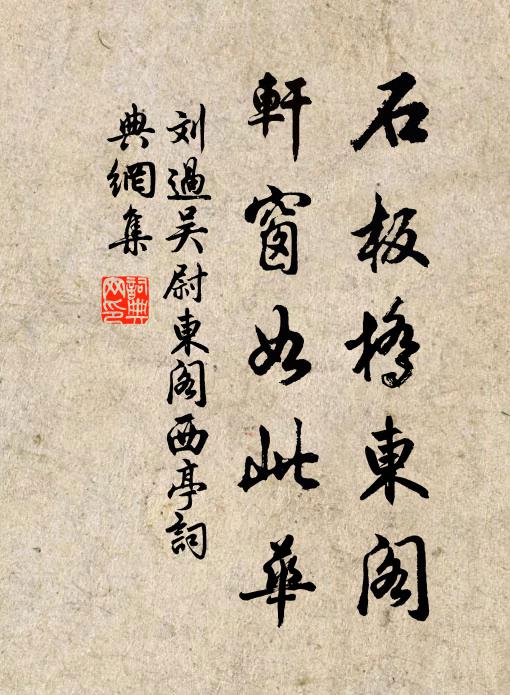 石板橋東閣
軒窗如此華
刘過吴尉東閣西亭詞
典網集
詞典網印